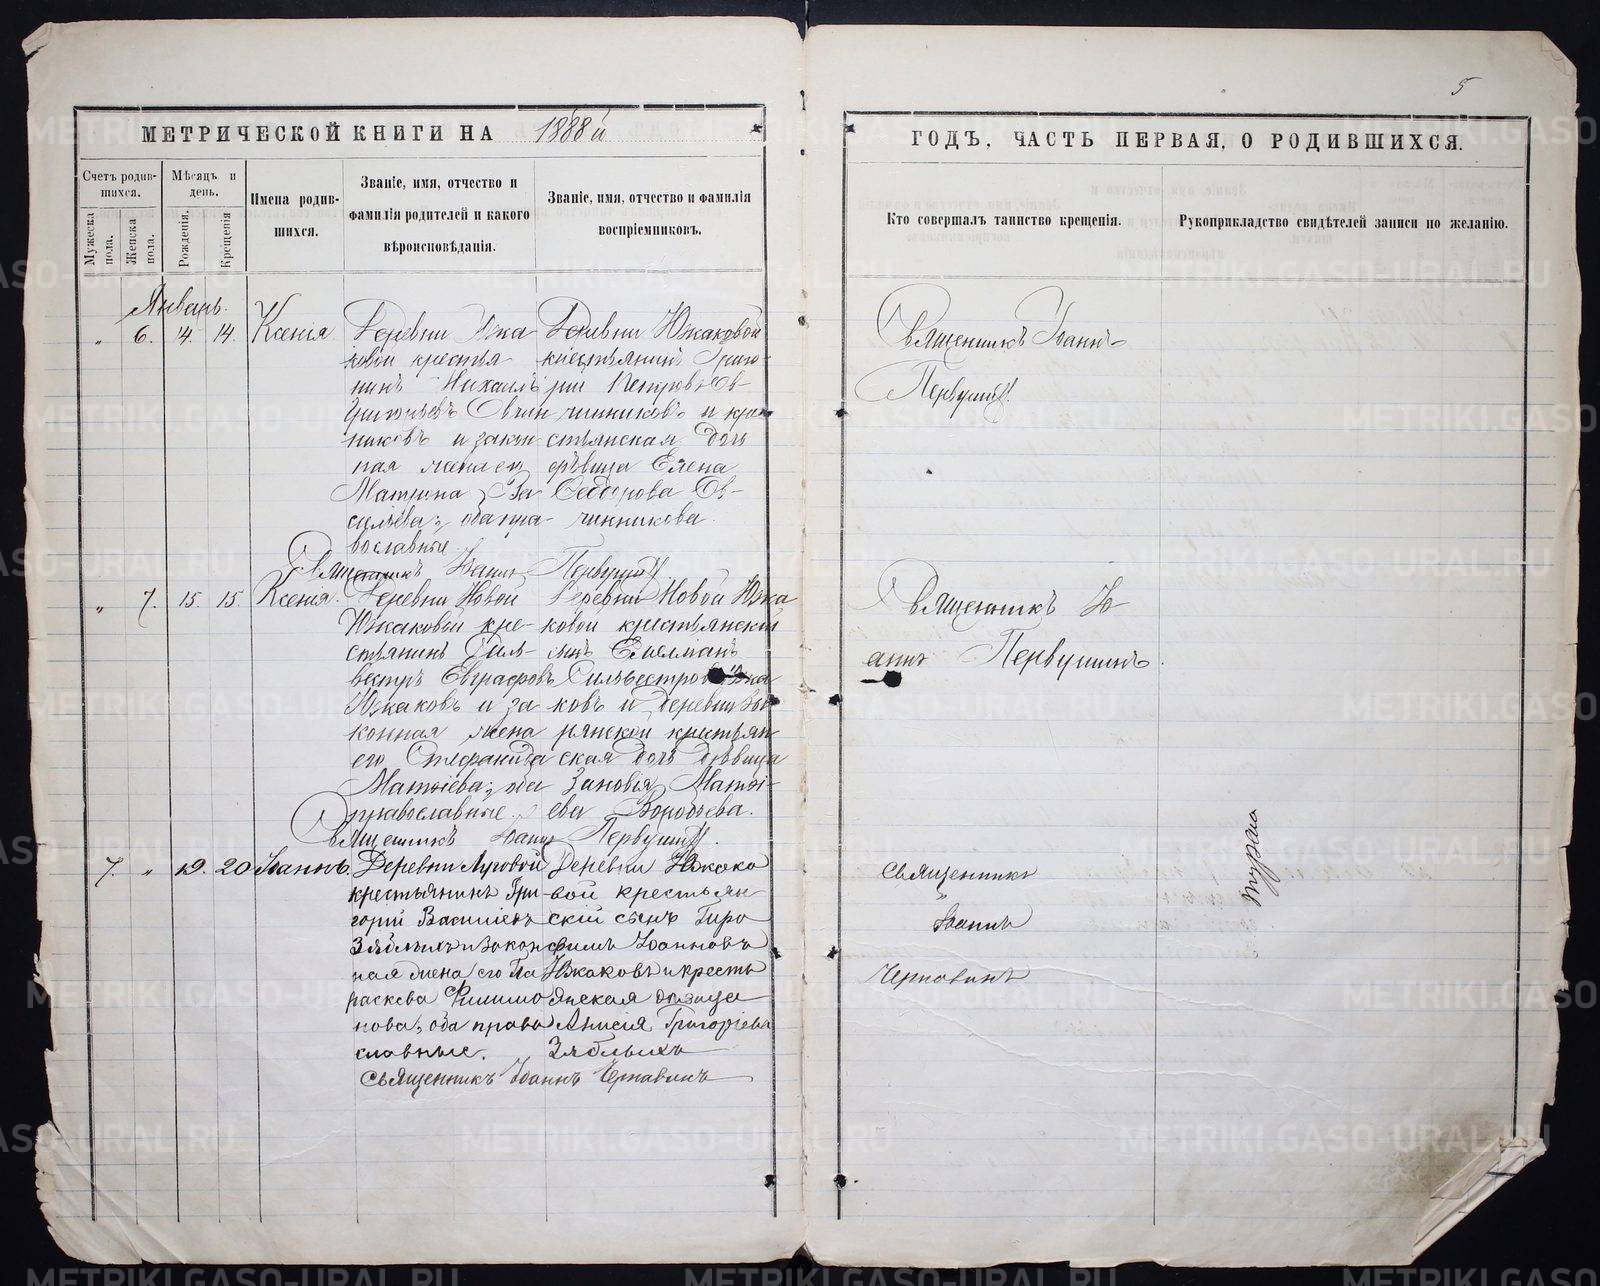 5
МЕТРИЧЕСКОЙ КНИГИ НА 1888й
ГОДЪ, ЧАСТЬ ПЕРВАЯ, О РОДИВШИХСЯ.
Счетъ родив-
шихся.
Мужеска
пола.
Женска
пола.
Мѣсяцъ и
день.
Рожденія.
Крещенія
Имена родив-
шихся.
Званіе, имя, отчество и
фамилія родителей и какого
вѣроисповѣданія.
Званіе, имя, отчество и фамилія
воспріемниковъ.
Кто совершалъ таинство крещенія.
Рукоприкладство свидѣтелей записи по желанію.
Январь.
„ 6. 14. 14. Ксенія
Деревни Южа-
ковой крестья-
нинъ Михаилъ
Григорьевъ Овчин-
никовъ и закон-
ная жена его
Матрона Ва-
сильева; оба пра-
вославные.
Деревни Южаковой
крестьянинъ Григо-
рій Петровъ Ов-
чинниковъ и кре-
стьянская дочь
дѣвица Елена
Ѳеодорова Ов-
чинникова.
Священникъ Іоаннъ Первушинъ.
Священникъ Іоаннъ
Первушинъ.
„ 7. 15. 15. Ксенія.
Деревни Новой
Южаковой кре-
стьянинъ Силь-
вестръ Евграфовъ
Южаковъ и за-
конная жена
его Стефанида
Матѳіева; оба
православные.
Деревни Новой Южа
ковой крестьянскій
сынъ
Сильвестровъ Южа
ковъ и деревни
крестьян
ская дочь дѣвица
Зиновья Матѳі-
ева Воробьева.
Священникъ Іоаннъ Первушинъ.
Священникъ Іо-
аннъ Первушинъ.
7. „ 19. 20 Іоаннъ.
Деревни Луговой
крестьянинъ Гри-
горій Василіевъ
Зяблыхъ и закон
ная жена его Па
раскева Филимо
нова; оба право
славные.
Деревни Южако
вой крестьян-
скій сынъ
Іоанновъ
Южаковъ и кресть
янская дѣвица
Анисія Григоріева
Зяблыхъ
Священникъ Іоаннъ Чернавинъ
Священникъ
Іоаннъ
Чернавинъ
METRIKI.GASO-URAL.RU